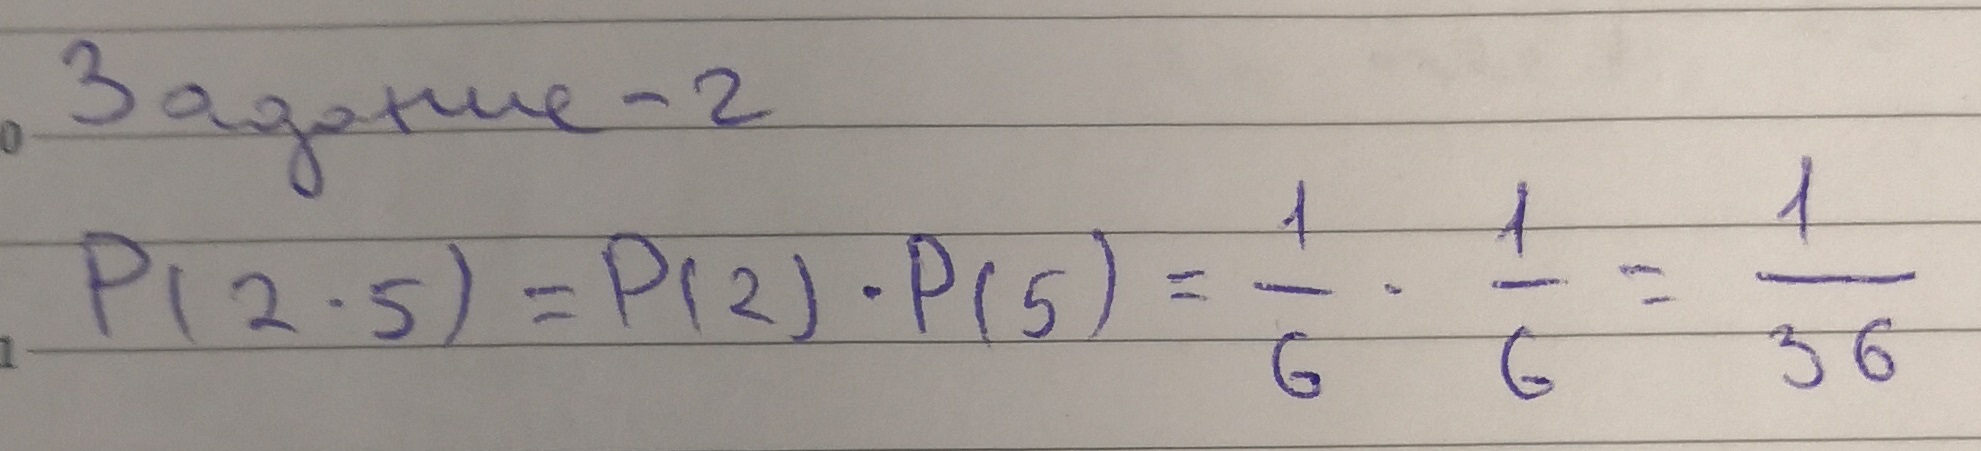 Задание - 2
P(2·5) = P(2)·P(5) = 1/6 · 1/6 = 1/36